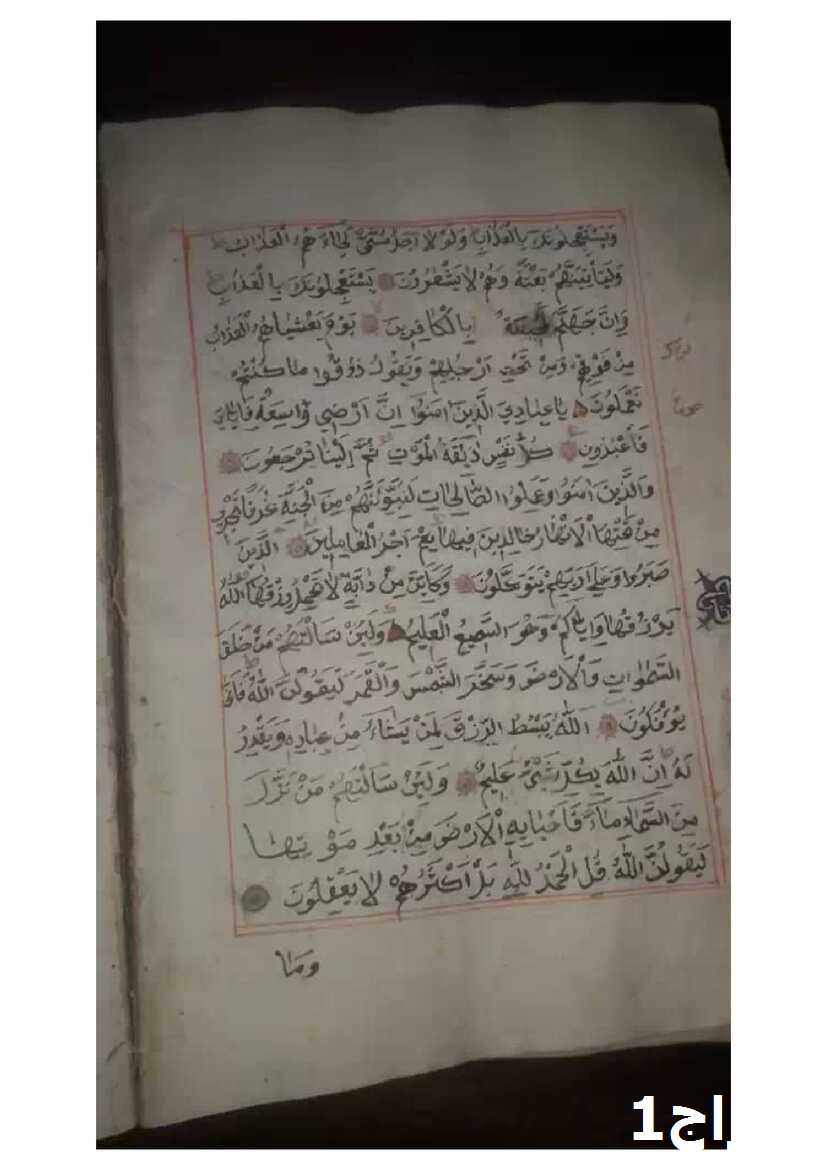 وَيَسْتَعْجِلُونَكَ بِالْعَذَابِ وَلَوْلَا اَجَلٌ مُسَمًّى لَجَاءَهُمُ الْعَذَابُ
وَلَيَأْتِيَنَّهُمْ بَغْتَةً وَهُمْ لَا يَشْعُرُونَ يَسْتَعْجِلُونَكَ بِالْعَذَابِ
وَاِنَّ جَهَنَّمَ لَمُحِيطَةٌ بِالْكَافِرِينَ يَوْمَ يَغْشَيٰهُمُ الْعَذَابُ
مِنْ فَوْقِهِمْ وَمِنْ تَحْتِ اَرْجُلِهِمْ وَيَقُولُ ذُوقُوا مَا كُنْتُمْ
تَعْمَلُونَ يَاعِبَادِيَ الَّذِينَ اٰمَنُوا اِنَّ اَرْضِي وَاسِعَةٌ فَاِيَّايَ
فَاعْبُدُونِ كُلُّ نَفْسٍ ذَايِقَةُ الْمَوْتِ ثُمَّ اِلَيْنَا تُرْجَعُونَ
وَالَّذِينَ اٰمَنُوا وَعَمِلُوا الصَّالِحَاتِ لَنُبَوِّئَنَّهُمْ مِنَ الْجَنَّةِ غُرَفًا تَجْرِي
مِنْ تَحْتِهَا الْاَنْهَارُ خَالِدِينَ فِيهَا نِعْمَ اَجْرُ الْعَامِلِينَ الَّذِينَ
صَبَرُوا وَعَلٰى رَبِّهِمْ يَتَوَكَّلُونَ وَكَاَيِّنْ مِنْ دَابَّةٍ لَا تَحْمِلُ رِزْقَهَا اللّٰهُ
يَرْزُقُهَا وَاِيَّاكُمْ وَهُوَ السَّمِيعُ الْعَلِيمُ وَلَئِنْ سَاَلْتَهُمْ مَنْ خَلَقَ
السَّمٰوَاتِ وَالْاَرْضَ وَسَخَّرَ الشَّمْسَ وَالْقَمَرَ لَيَقُولُنَّ اللّٰهُ فَاَنّٰى
يُؤْفَكُونَ اَللّٰهُ يَبْسُطُ الرِّزْقَ لِمَنْ يَشَاءُ مِنْ عِبَادِهِ وَيَقْدِرُ
لَهُ اِنَّ اللّٰهَ بِكُلِّ شَيْءٍ عَلِيمٌ وَلَئِنْ سَاَلْتَهُمْ مَنْ نَزَّلَ
مِنَ السَّمَاءِ مَاءً فَاَحْيَا بِهِ الْاَرْضَ مِنْ بَعْدِ مَوْتِهَا
لَيَقُولُنَّ اللّٰهُ قُلِ الْحَمْدُ لِلّٰهِ بَلْ اَكْثَرُهُمْ لَا يَعْقِلُونَ
وَمَا